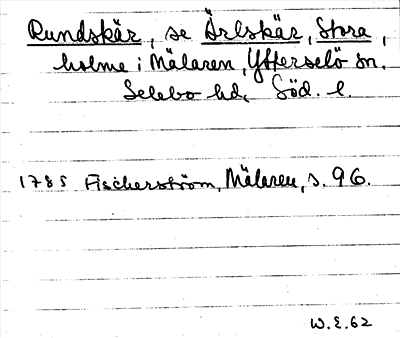 Rundskär, se Ärlskär, Stora,
holme i Mälaren, Ytterselö sn.
Selebo hd. Söd. l.
1785 Fischerström, Mälaren, s. 96.
W.E.62